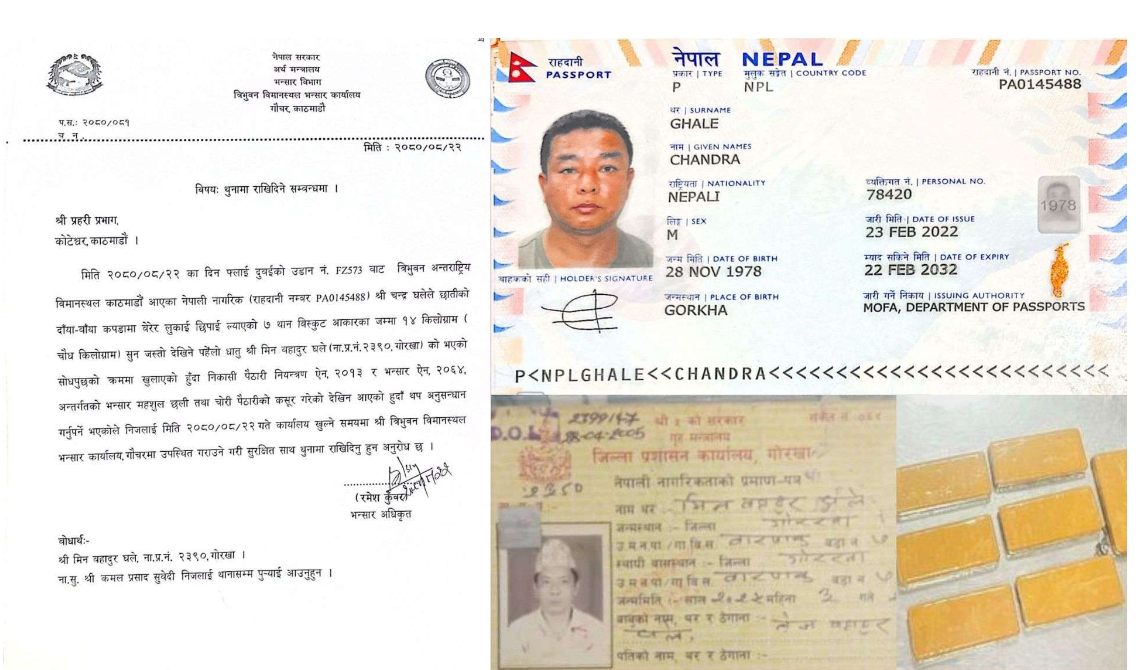 नेपाल सरकार
अर्थ मन्त्रालय
भन्सार विभाग
त्रिभुवन विमानस्थल भन्सार कार्यालय
गौचर, काठमाडौं
प.स.: २०८०/०८१
च. न.
मिति : २०८०/०८/२२
विषय: थुनामा राखिदिने सम्बन्धमा ।
श्री प्रहरी प्रभाग,
कोटेश्वर, काठमाडौं ।
मिति २०८०/०८/२२ का दिन फ्लाई दुबईको उडान नं. FZ573 बाट त्रिभुवन अन्तराष्ट्रिय
विमानस्थल काठमाडौं आएका नेपाली नागरिक (राहदानी नम्बर PA0145488) श्री चन्द्र घलेले छातीको
दाँया-बाँया कपडामा बेरेर लुकाई छिपाई ल्याएको ७ थान बिस्कुट आकारका जम्मा १४ किलोग्राम (
चौध किलोग्राम) सुन जस्तो देखिने पहेँलो धातु श्री मिन बहादुर घले (ना.प्र.नं.२३९०, गोरखा) को भएको
सोधपुछको क्रममा खुलाएको हुँदा निकासी पैठारी नियन्त्रण ऐन, २०१३ र भन्सार ऐन, २०६४,
अन्तर्गतको भन्सार महशुल छली तथा चोरी पैठारीको कसूर गरेको देखिन आएको हुदाँ थप अनुसन्धान
गर्नुपर्ने भएकोले निजलाई मिति २०८०/०८/२२ गते कार्यालय खुल्ने समयमा श्री त्रिभुवन विमानस्थल
भन्सार कार्यालय, गौचरमा उपस्थित गराउने गरी सुरक्षित साथ थुनामा राखिदिनु हुन अनुरोध छ ।
(रमेश कुँवर)
भन्सार अधिकृत
बोधार्थ:-
श्री मिन बहादुर घले, ना.प्र.नं. २३९०, गोरखा ।
ना.सु. श्री कमल प्रसाद सुवेदी निजलाई थानासम्म पुर्‍याई आउनुहुन ।
राहदानी
PASSPORT
नेपाल NEPAL
प्रकार | TYPE
P
मुलुक सङ्केत | COUNTRY CODE
NPL
राहदानी नं. | PASSPORT NO.
PA0145488
थर | SURNAME
GHALE
नाम | GIVEN NAMES
CHANDRA
राष्ट्रियता | NATIONALITY
NEPALI
व्यक्तिगत नं. | PERSONAL NO.
78420
1978
लिङ्ग | SEX
M
जारी मिति | DATE OF ISSUE
23 FEB 2022
जन्म मिति | DATE OF BIRTH
28 NOV 1978
म्याद सकिने मिति | DATE OF EXPIRY
22 FEB 2032
वाहकको सही | HOLDER'S SIGNATURE
जन्मस्थान | PLACE OF BIRTH
GORKHA
जारी गर्ने निकाय | ISSUING AUTHORITY
MOFA, DEPARTMENT OF PASSPORTS
P<NPLGHALE<<CHANDRA<<<<<<<<<<<<<<<<<<<<<<<<<
श्री ५ को सरकार
D.O.I. 28-04-2005
गृह मन्त्रालय
जिल्ला प्रशासन कार्यालय, गोरखा
नेपाली नागरिकताको प्रमाण-पत्र
नाम थर :- मिन बहादुर घले
जन्मस्थान :- जिल्ला गोरखा
उ.म.न.पा./गा.वि.स. वारपाक वडा नं
स्थायी बासस्थान :- जिल्ला गोरखा
उ.म.न.पा./गा.वि.स. वारपाक वडा नं
जन्ममिति :- साल महिना गते
बाबुको नाम, थर र ठेगाना :- बहादुर
घले
पतिको नाम, थर र ठेगाना :-